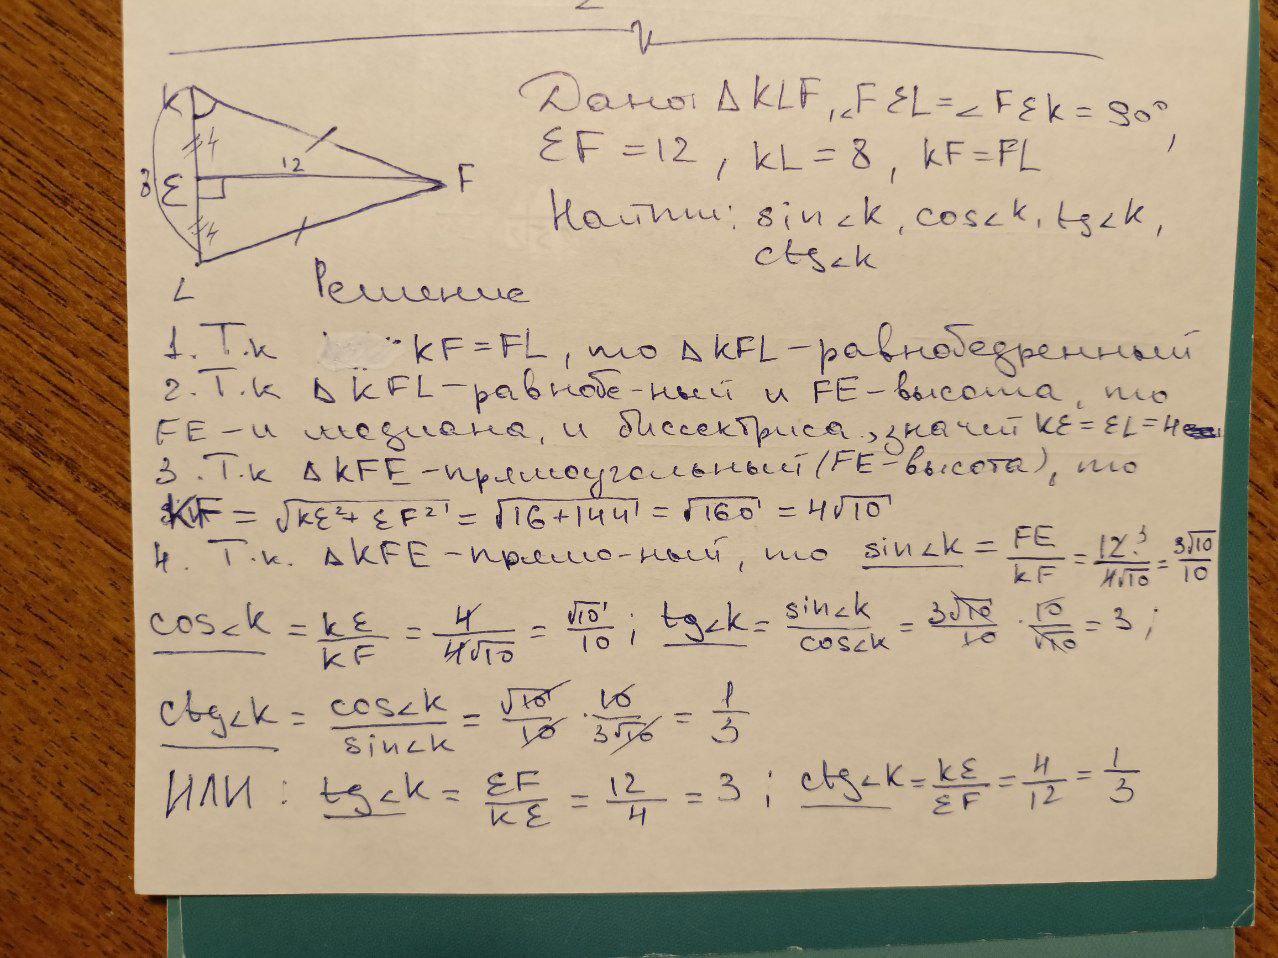 К
4
12
8
Ɛ
F
4
L
Дано: ΔKLF, ∠FƐL = ∠FƐK = 90°,
ƐF = 12, KL = 8, KF = FL
Найти: sin∠K, cos∠K, tg∠K,
ctg∠K
Решение
1. Т.к KF = FL, то ΔKFL – равнобедренный
2. Т.к ΔKFL – равнобе-ный и FE – высота, то
FE – и медиана, и биссектриса, значит KƐ = ƐL = 4
3. Т.к ΔKFE – прямоугольный (FE – высота), то
KF = √(KƐ² + ƐF²) = √(16 + 144) = √160 = 4√10
4. Т.к. ΔKFE – прямо-ный, то sin∠K = FE/KF = 12/4√10 = 3√10/10
cos∠K = KƐ/KF = 4/4√10 = √10/10; tg∠K = sin∠K/cos∠K = 3√10/10 · 10/√10 = 3;
ctg∠K = cos∠K/sin∠K = √10/10 · 10/3√10 = 1/3
ИЛИ: tg∠K = ƐF/KƐ = 12/4 = 3; ctg∠K = KƐ/ƐF = 4/12 = 1/3